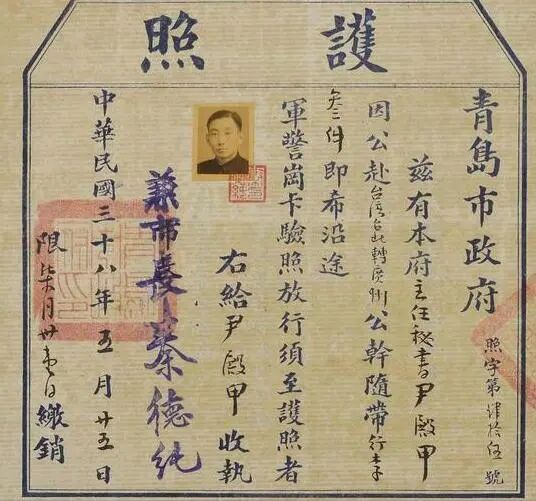 護照
青島市政府
照字第肆拾伍號
茲有本府主任秘書尹殿甲
因公赴台灣台北轉廣州公幹隨帶行李
叁件即希沿途
軍警崗卡驗照放行須至護照者
右給尹殿甲收執
兼市長秦德純
中華民國三十八年五月廿五日
限柒月卅壹日繳銷